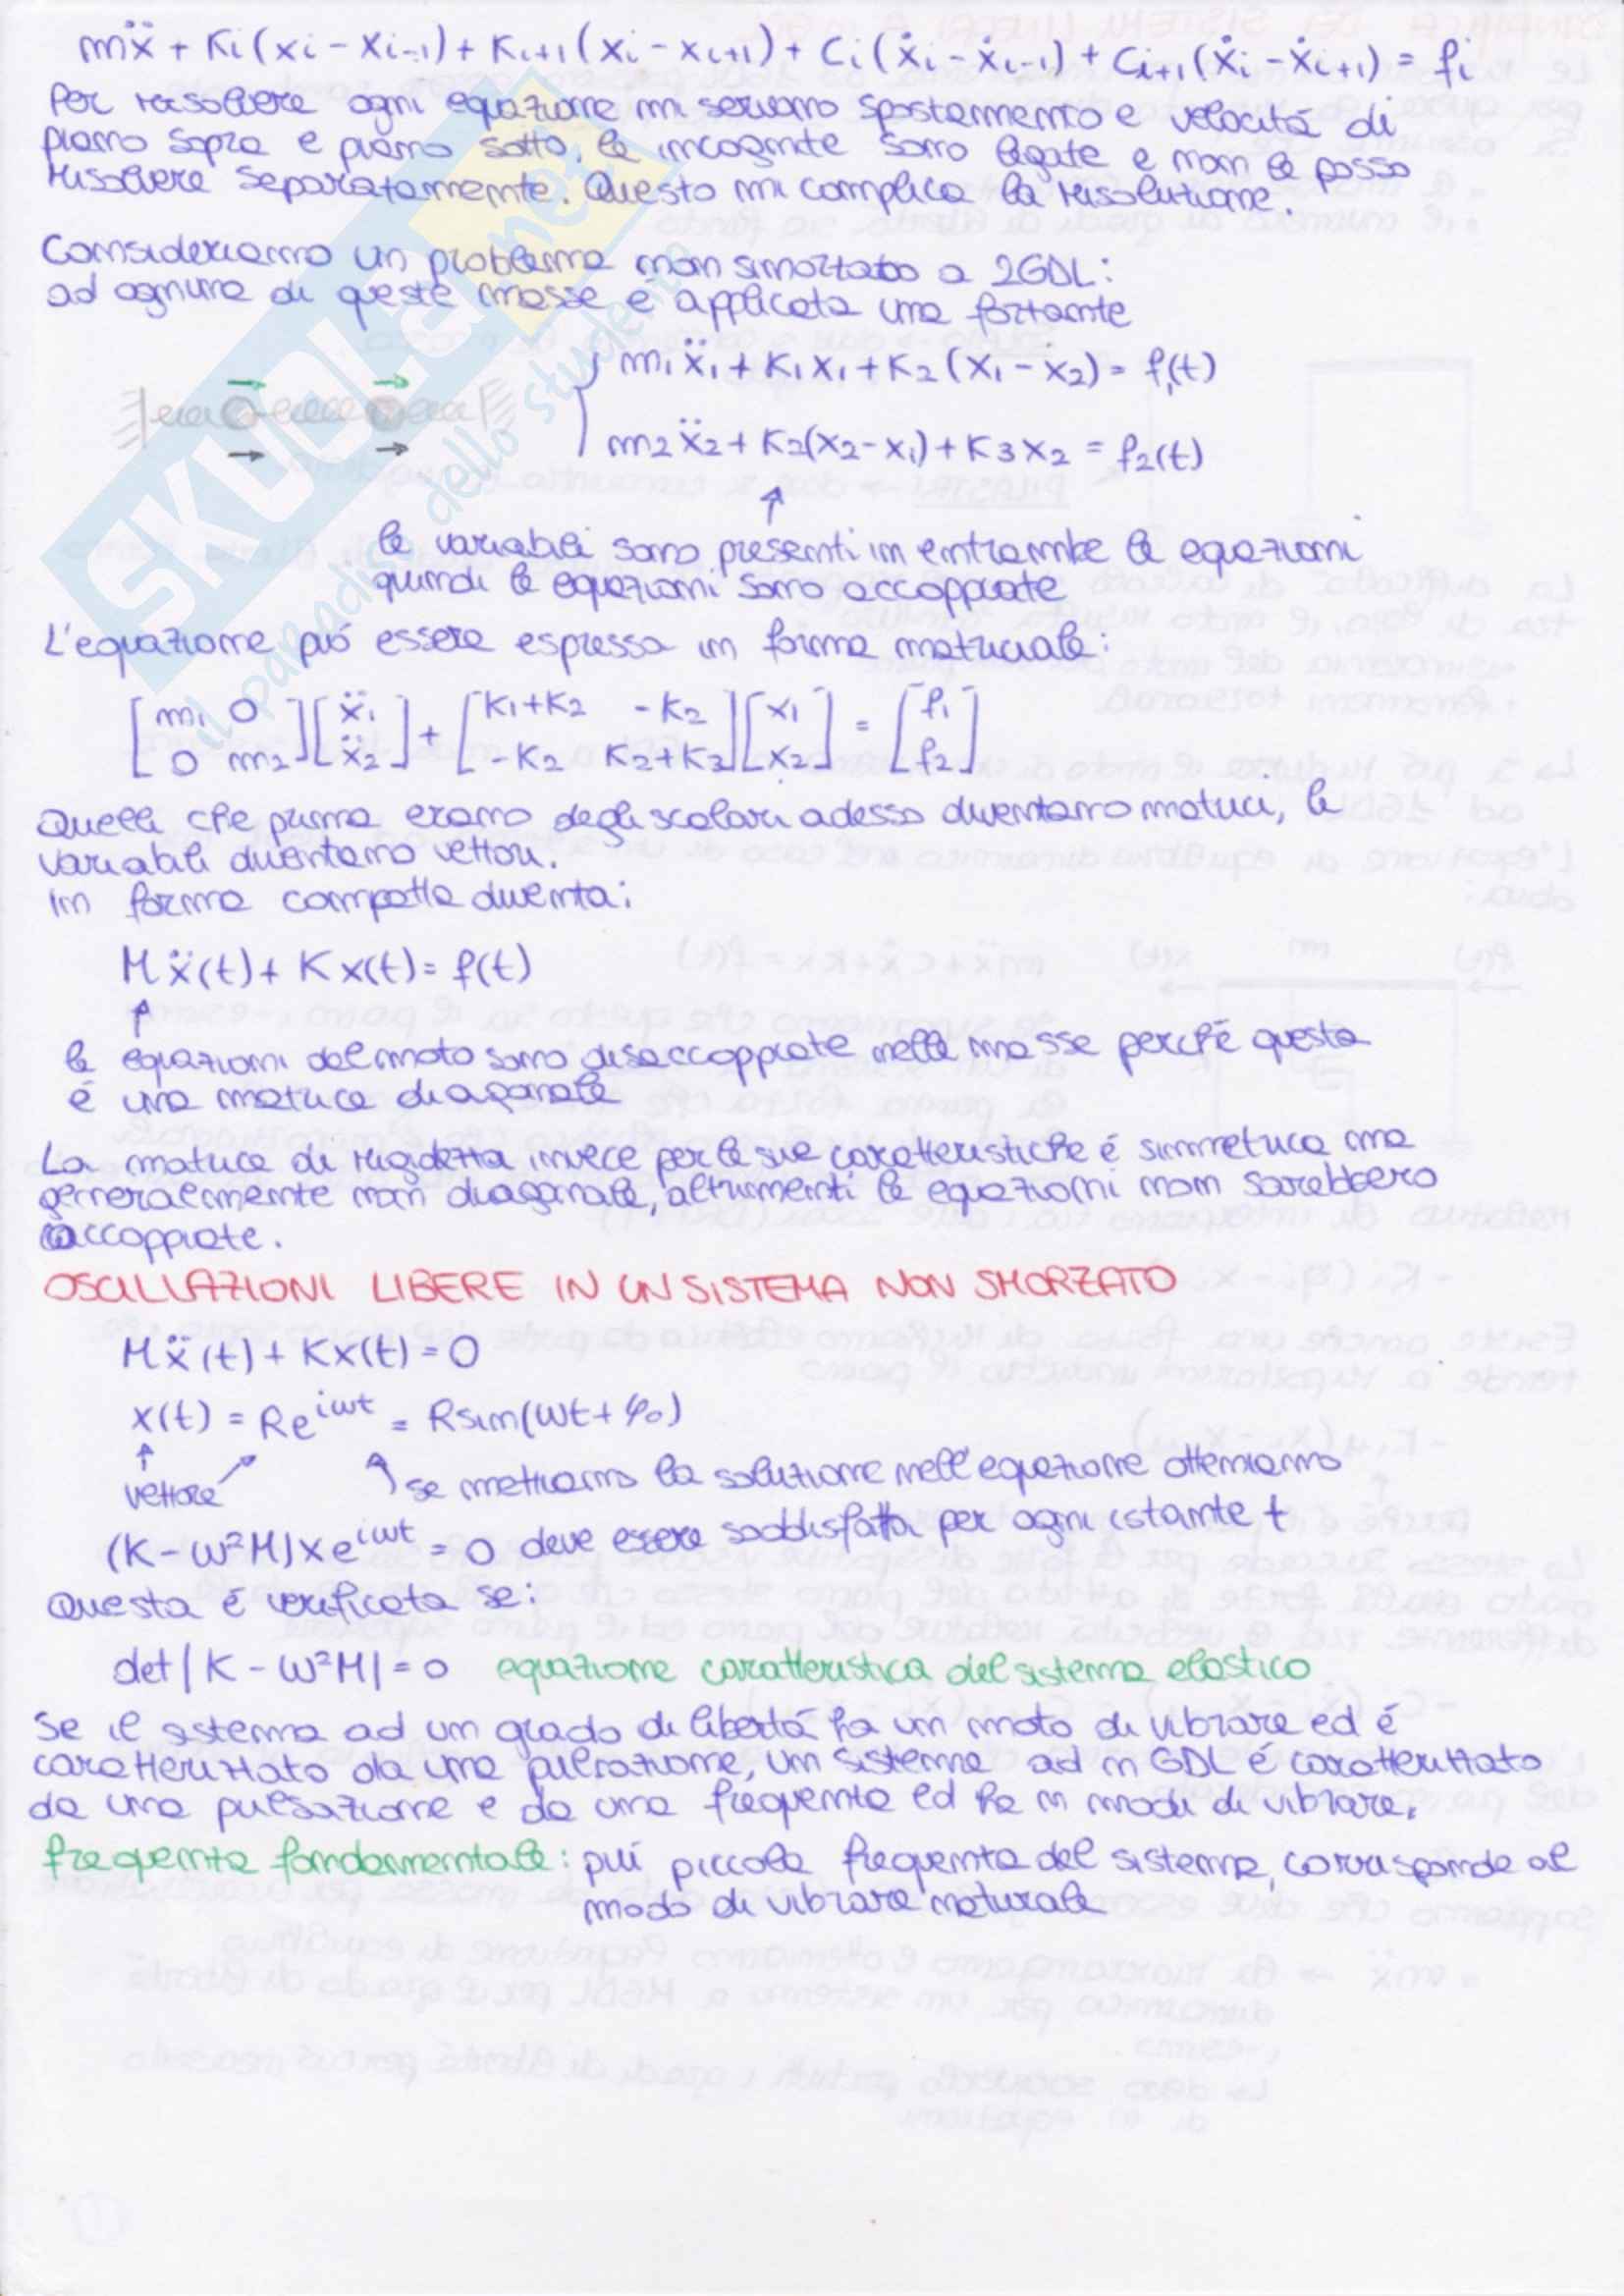 mẍ + Ki(xi - xi-1) + Ki+1(xi - xi+1) + Ci(ẋi - ẋi-1) + Ci+1(ẋi - ẋi+1) = fi
Per risolvere ogni equazione mi servono spostamento e velocitá di
piano sopra e piano sotto. le incognite sono legate e non le posso
risolvere separatamente. Questo mi complica la risoluzione.
Consideriamo un problema non smorzato a 2GDL:
ad ognuna di queste masse é applicata una forzante
m1ẍ1 + K1x1 + K2(x1 - x2) = f1(t)
m2ẍ2 + K2(x2 - x1) + K3x2 = f2(t)
↑
le variabili sono presenti in entrambe le equazioni
quindi le equazioni sono accoppiate
L'equazione puó essere espressa in forma matriciale:
[m1 0 [ẍ1 [K1+K2 -K2 [x1 [f1
0 m2] ẍ2] + -K2 K2+K3] x2] = f2]
Quelli che prima erano degli scalari adesso diventano matrici, le
variabili diventano vettori.
In forma compatta diventa:
Mẍ(t) + Kx(t) = f(t)
↑
le equazioni del moto sono disaccoppiate nelle masse perché questa
é una matrice diagonale
La matrice di rigidezza invece per le sue caratteristiche é simmetrica ma
generalmente non diagonale, altrimenti le equazioni non sarebbero
accoppiate.
OSCILLAZIONI LIBERE IN UN SISTEMA NON SMORZATO
Mẍ(t) + Kx(t) = 0
x(t) = Re^iωt = Rsin(ωt + φ0)
↑ ↗ ↖ se mettiamo la soluzione nell'equazione otteniamo
vettore
(K - ω²M)xe^iωt = 0 deve essere soddisfatta per ogni istante t
Questa é verificata se:
det|K - ω²M| = 0 equazione caratteristica del sistema elastico
Se il sistema ad un grado di libertá ha un moto di vibrare ed é
caratterizzato da una pulsazione, un sistema ad n GDL é caratterizzato
da una pulsazione e da una frequenza ed ha n modi di vibrare.
frequenza fondamentale: piú piccola frequenza del sistema, corrisponde al
modo di vibrare naturale
SKUOLA.net
il paradiso dello studente